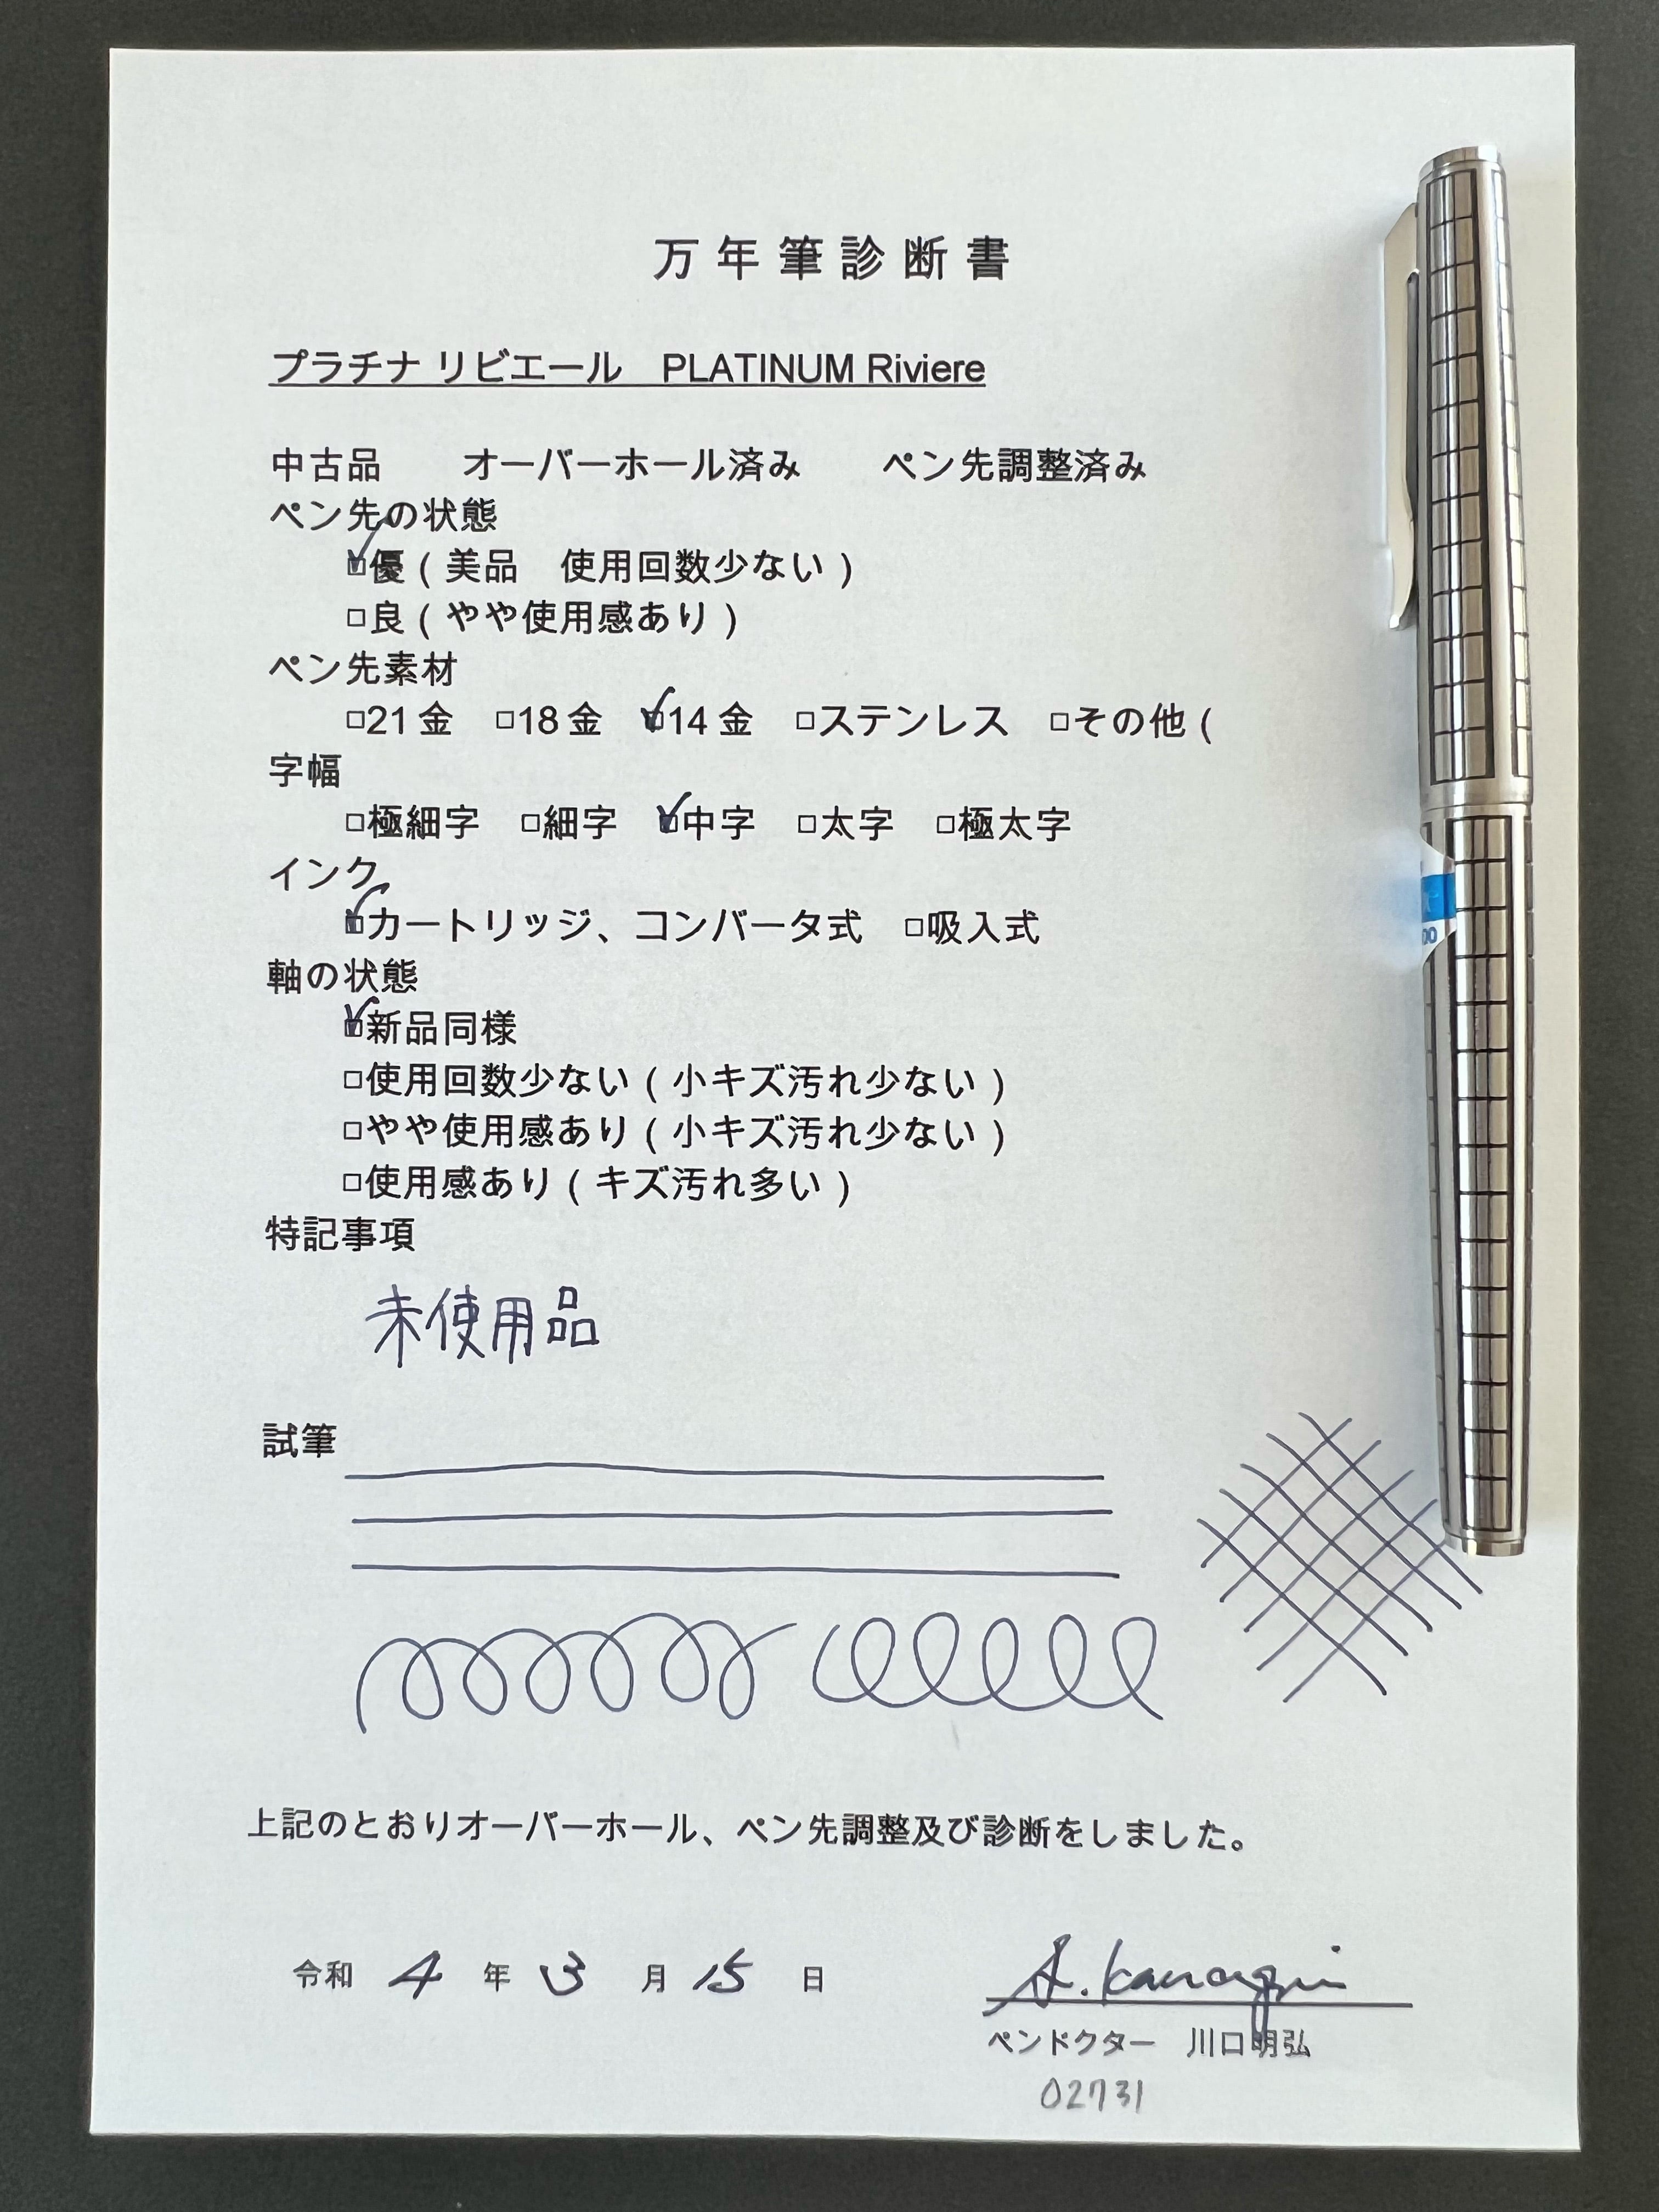 万年筆診断書
プラチナ リビエール　PLATINUM Riviere
中古品　　オーバーホール済み　　ペン先調整済み
ペン先の状態
☑優（美品　使用回数少ない）
□良（やや使用感あり）
ペン先素材
□21金　□18金　☑14金　□ステンレス　□その他（
字幅
□極細字　□細字　☑中字　□太字　□極太字
インク
☑カートリッジ、コンバータ式　□吸入式
軸の状態
☑新品同様
□使用回数少ない（小キズ汚れ少ない）
□やや使用感あり（小キズ汚れ少ない）
□使用感あり（キズ汚れ多い）
特記事項
未使用品
試筆
上記のとおりオーバーホール、ペン先調整及び診断をしました。
令和 4 年 3 月 15 日
A. Kawaguchi
ペンドクター　川口明弘
02731